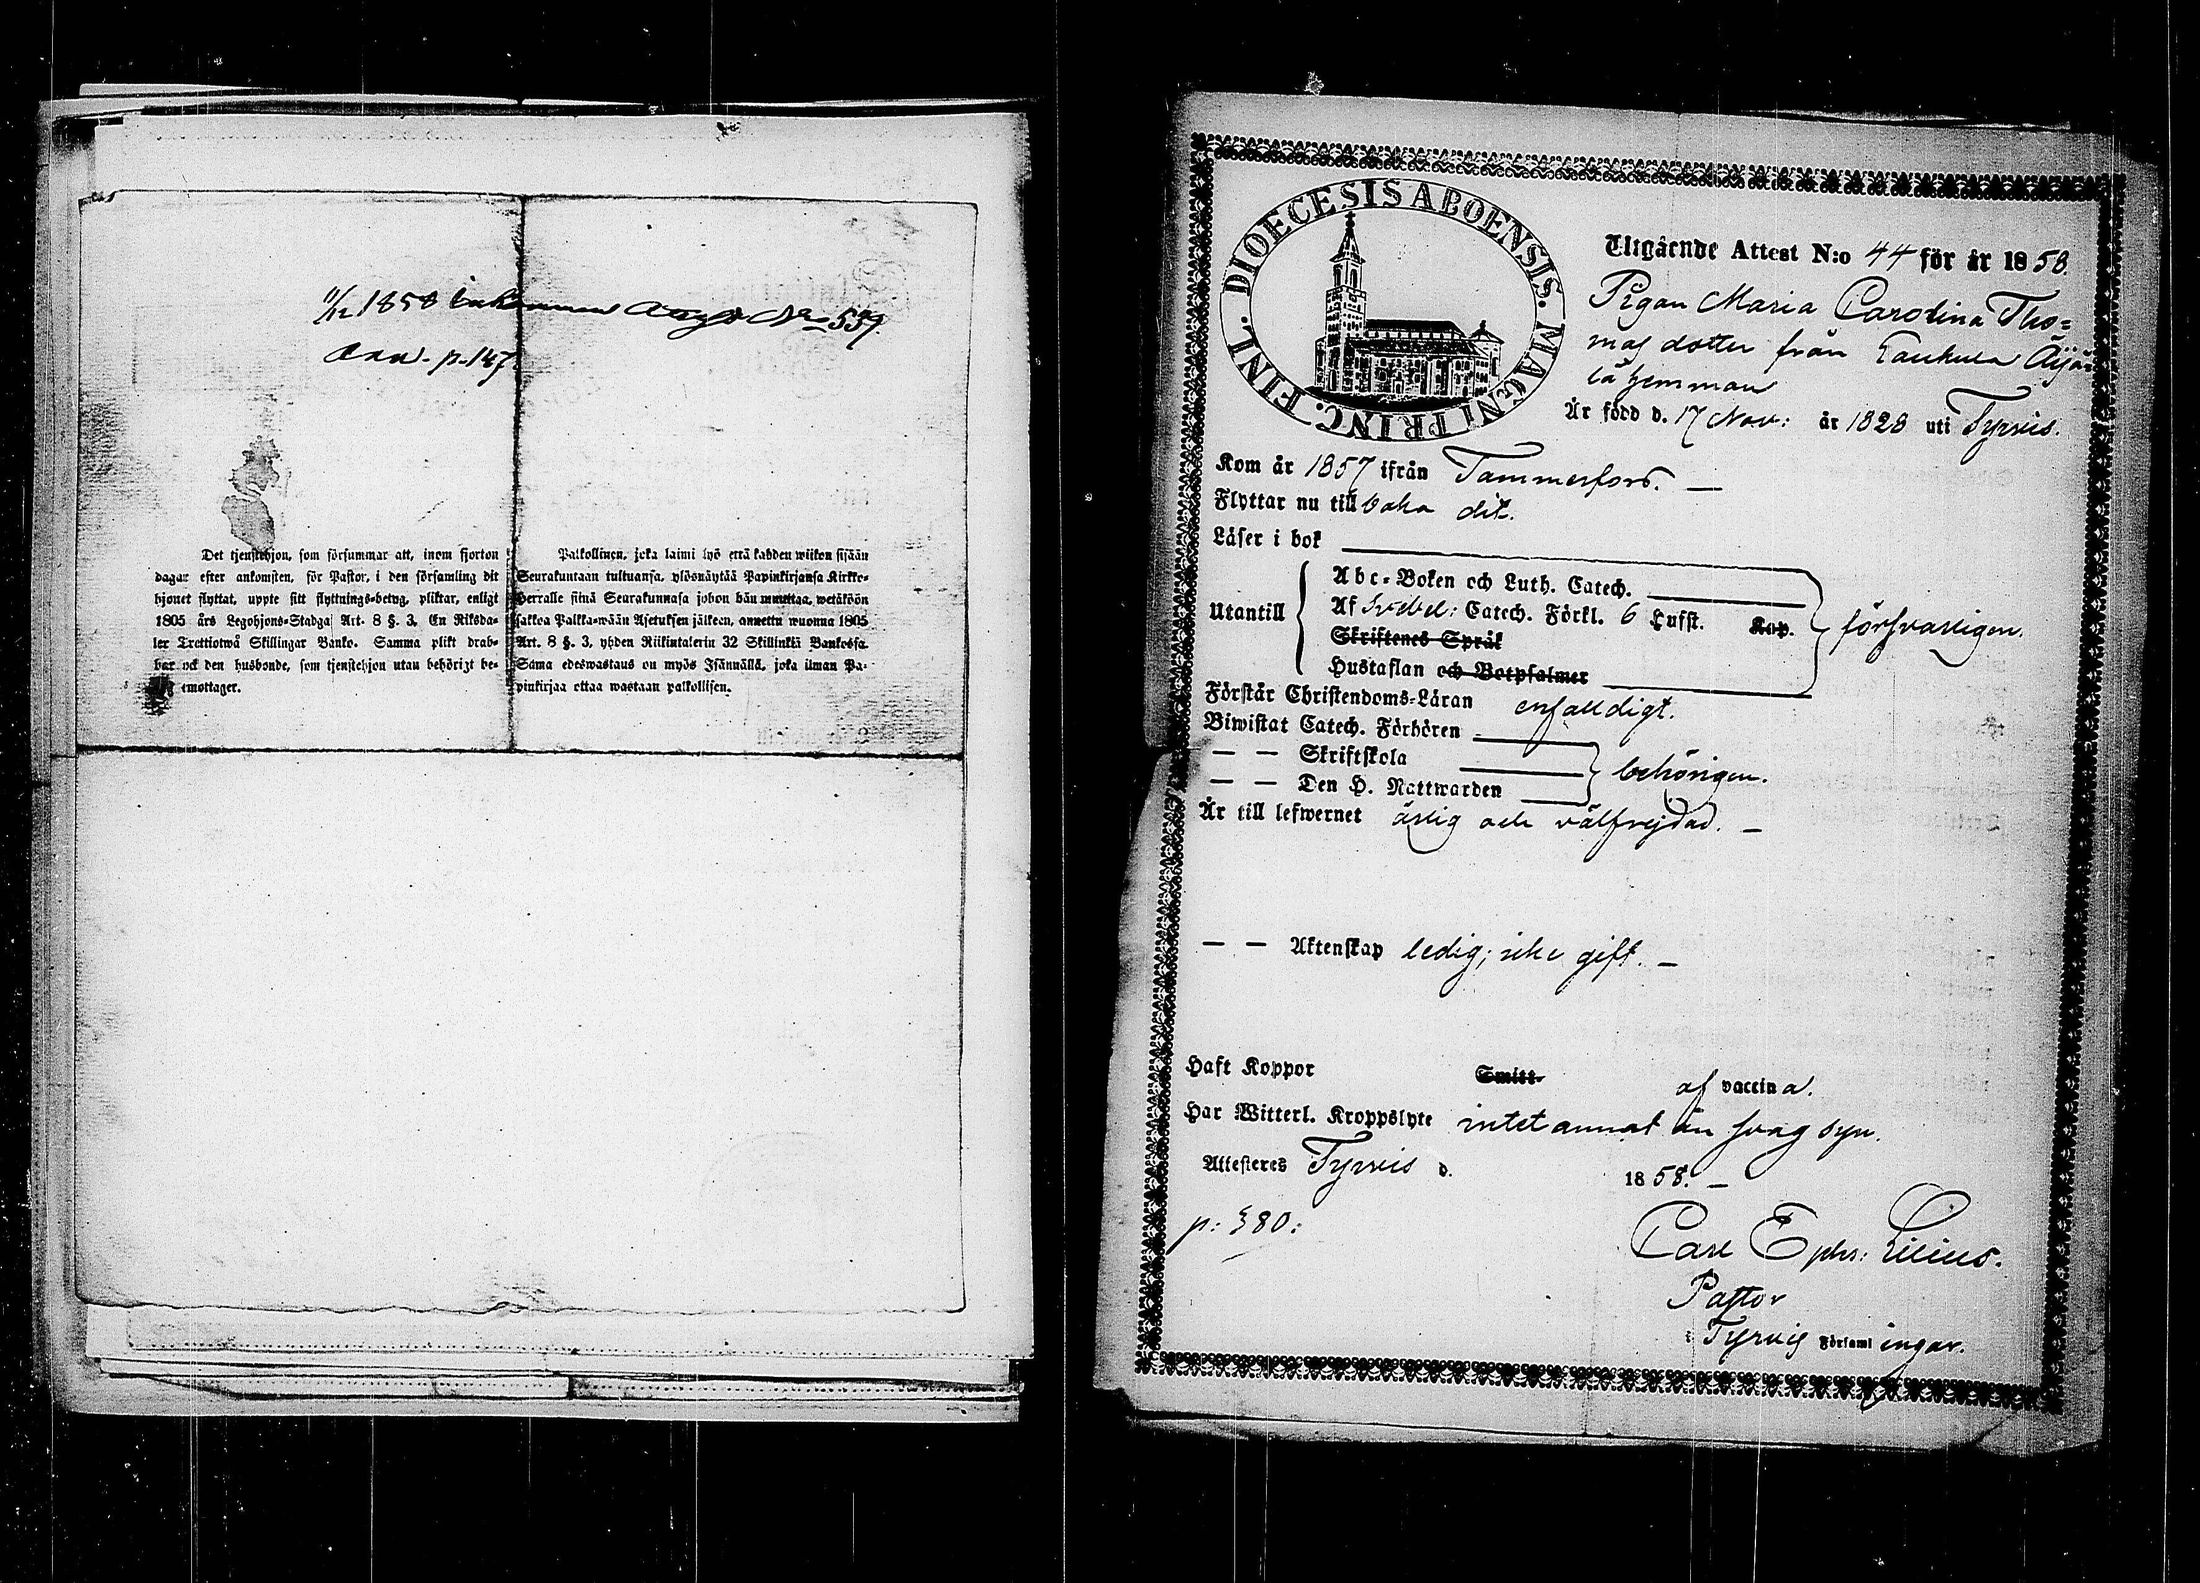 11/12 1858 inkommen Attest No 559.
Ann. p. 147
Det tjenstehjon, som försummar att, inom fjorton
dagar efter ankomsten, för Pastor, i den församling dit
hjonet flyttat, uppte sitt flyttnings-betyg, pliktar, enligt
1805 års Legohjons-Stadga Art. 8 §. 3. En Riksda-
ler Trettiotwå Skillingar Banko. Samma plikt drab-
bar ock den husbonde, som tjenstehjon utan behörigt be-
emottager.
Palkollinen, joka laimi lyö että kahden wiikon sisään
Seurakuntaan tultuansa, ylösnäytää Papinkirjansa Kirkko-
herralle siinä Seurakunnasa johon hän muuttaa, wetäköön
sakkoa Palkka-wään Asetuksen jälkeen, annettu wuonna 1805
Art. 8 §. 3, yhden Riikintalerin 32 Skillinkiä Bankossa.
Sama edeswastaus on myös Isännällä, joka ilman Pa-
pinkirjaa ottaa wastaan palkollisen.
DIOECESIS ABOENSIS. MAGNI PRINC. FINL.
Utgående Attest N:o 44 för år 1858.
Pigan Maria Carolina Tho=
mas dotter från Kaukula Äijä-
lä hemman
Är född d. 17 Nov: år 1828 uti Tyrvis.
Kom år 1857 ifrån Tammerfors. —
Flyttar nu tillbaka dit.
Läser i bok
Utantill
Abc-Boken och Luth. Catech.
Af Svebel: Catech. Förkl. 6 Hufst. Kap.
Skriftenes Språk
Hustaflan och Botpsalmer
försvarligen.
Förstår Christendoms-Läran enfaldigt.
Biwistat Catech. Förhören
— — Skriftskola
— — Den H. Nattwarden
behörigen.
Är till lefwernet ärlig och välfrejdad. —
— — Äktenskap ledig; icke gift. —
Haft Koppor Smitt- af vaccina.
Har Witterl. Kroppslyte intet annat än svag syn.
Attesteres Tyrvis d. 1858. —
p: 380:
Carl Ephr: Lilius.
Pastor
i Tyrvis Församlingar.